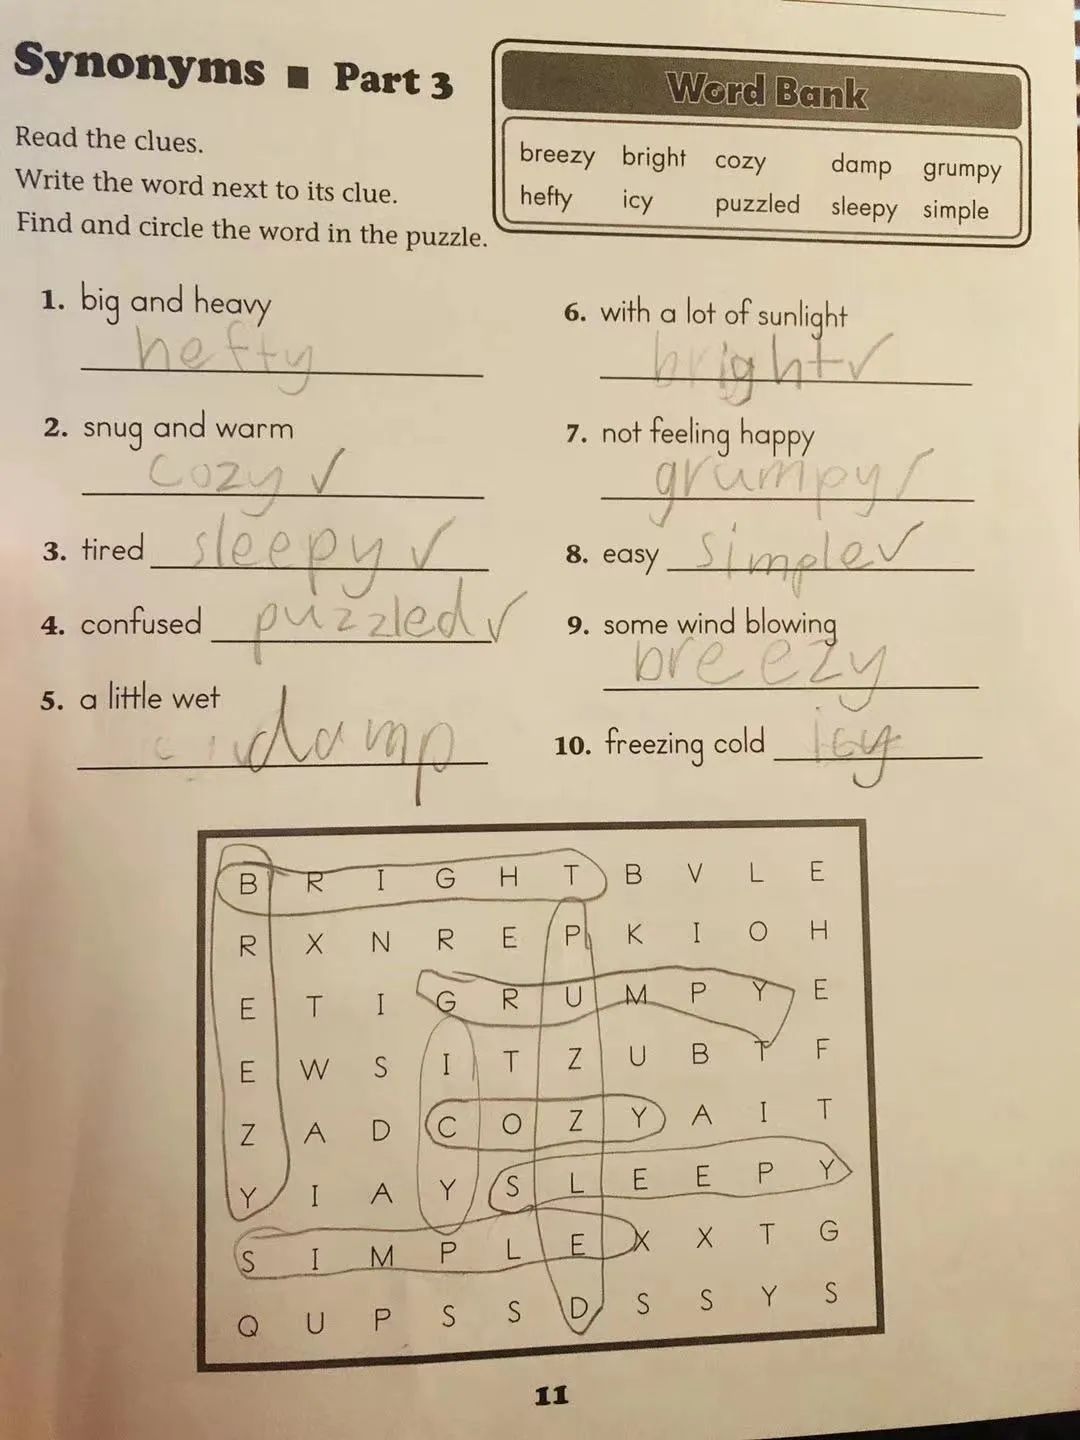 Synonyms ■ Part 3
Word Bank
breezy bright cozy damp grumpy
hefty icy puzzled sleepy simple
Read the clues.
Write the word next to its clue.
Find and circle the word in the puzzle.
1. big and heavy
hefty
2. snug and warm
cozy ✓
3. tired sleepy ✓
4. confused puzzled ✓
5. a little wet
damp
6. with a lot of sunlight
bright ✓
7. not feeling happy
grumpy ✓
8. easy simple ✓
9. some wind blowing
breezy
10. freezing cold icy
B R I G H T B V L E
R X N R E P K I O H
E T I G R U M P Y E
E W S I T Z U B T F
Z A D C O Z Y A I T
Y I A Y S L E E P Y
S I M P L E X X T G
Q U P S S D S S Y S
11